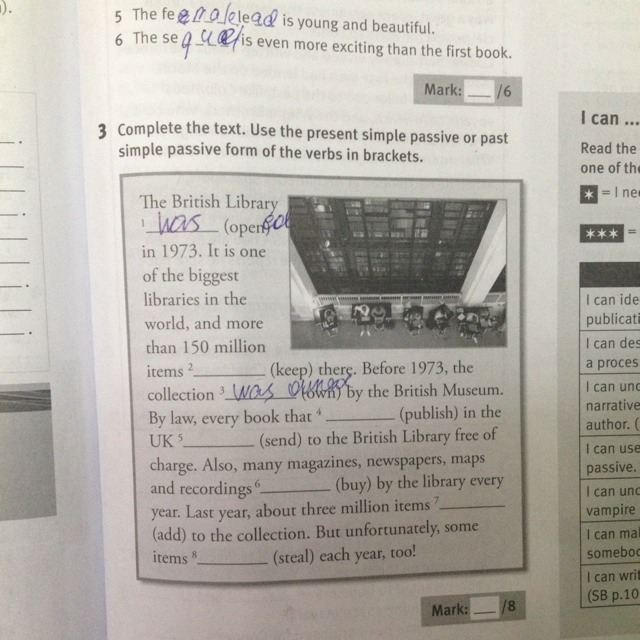 ).
5 The female lead is young and beautiful.
6 The sequel is even more exciting than the first book.
Mark: ___ /6
3 Complete the text. Use the present simple passive or past
simple passive form of the verbs in brackets.
The British Library
1 was (open)ed
in 1973. It is one
of the biggest
libraries in the
world, and more
than 150 million
items 2________ (keep) there. Before 1973, the
collection 3 was owned (own) by the British Museum.
By law, every book that 4________ (publish) in the
UK 5________ (send) to the British Library free of
charge. Also, many magazines, newspapers, maps
and recordings 6________ (buy) by the library every
year. Last year, about three million items 7________
(add) to the collection. But unfortunately, some
items 8________ (steal) each year, too!
Mark: ___ /8
I can ...
Read the
one of the
★ = I nee
★★★ =
I can ide
publicati
I can des
a proces
I can unc
narrative
author. (
I can use
passive.
I can unc
vampire
I can mal
somebod
I can writ
(SB p.10